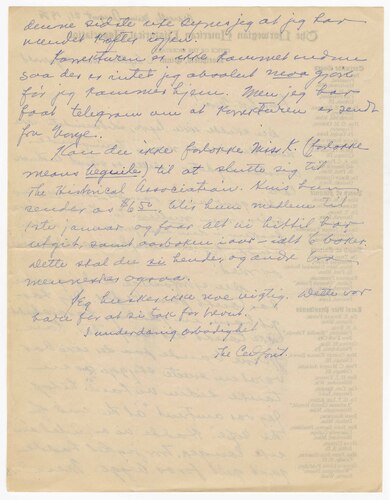 denne sidste ute synes jeg at jeg har
vendet kofter igjen.
Korrekturen er ikke kommet endnu
saa der er intet jeg absolut maa gjøre
før jeg kommer hjem. Men jeg har
faat telegram om at korrekturen er sendt
fra Norge.
Kan du ikke forlokke Miss K. (forlokke
means beguile) til at slutte sig til
The Historical Association. Hvis hun
sender os $6.50 blir hun medlem til
1ste januar og faar alt vi hittil har
utgit, samt aarboken iaar - ialt 6 bøker.
Dette skal du si hende, og andre bra
mennesker ogsaa.
Jeg husker ikke noe viktig. Dette var
bare for at si tak for brevet.
I underdanig ærbødighet
The